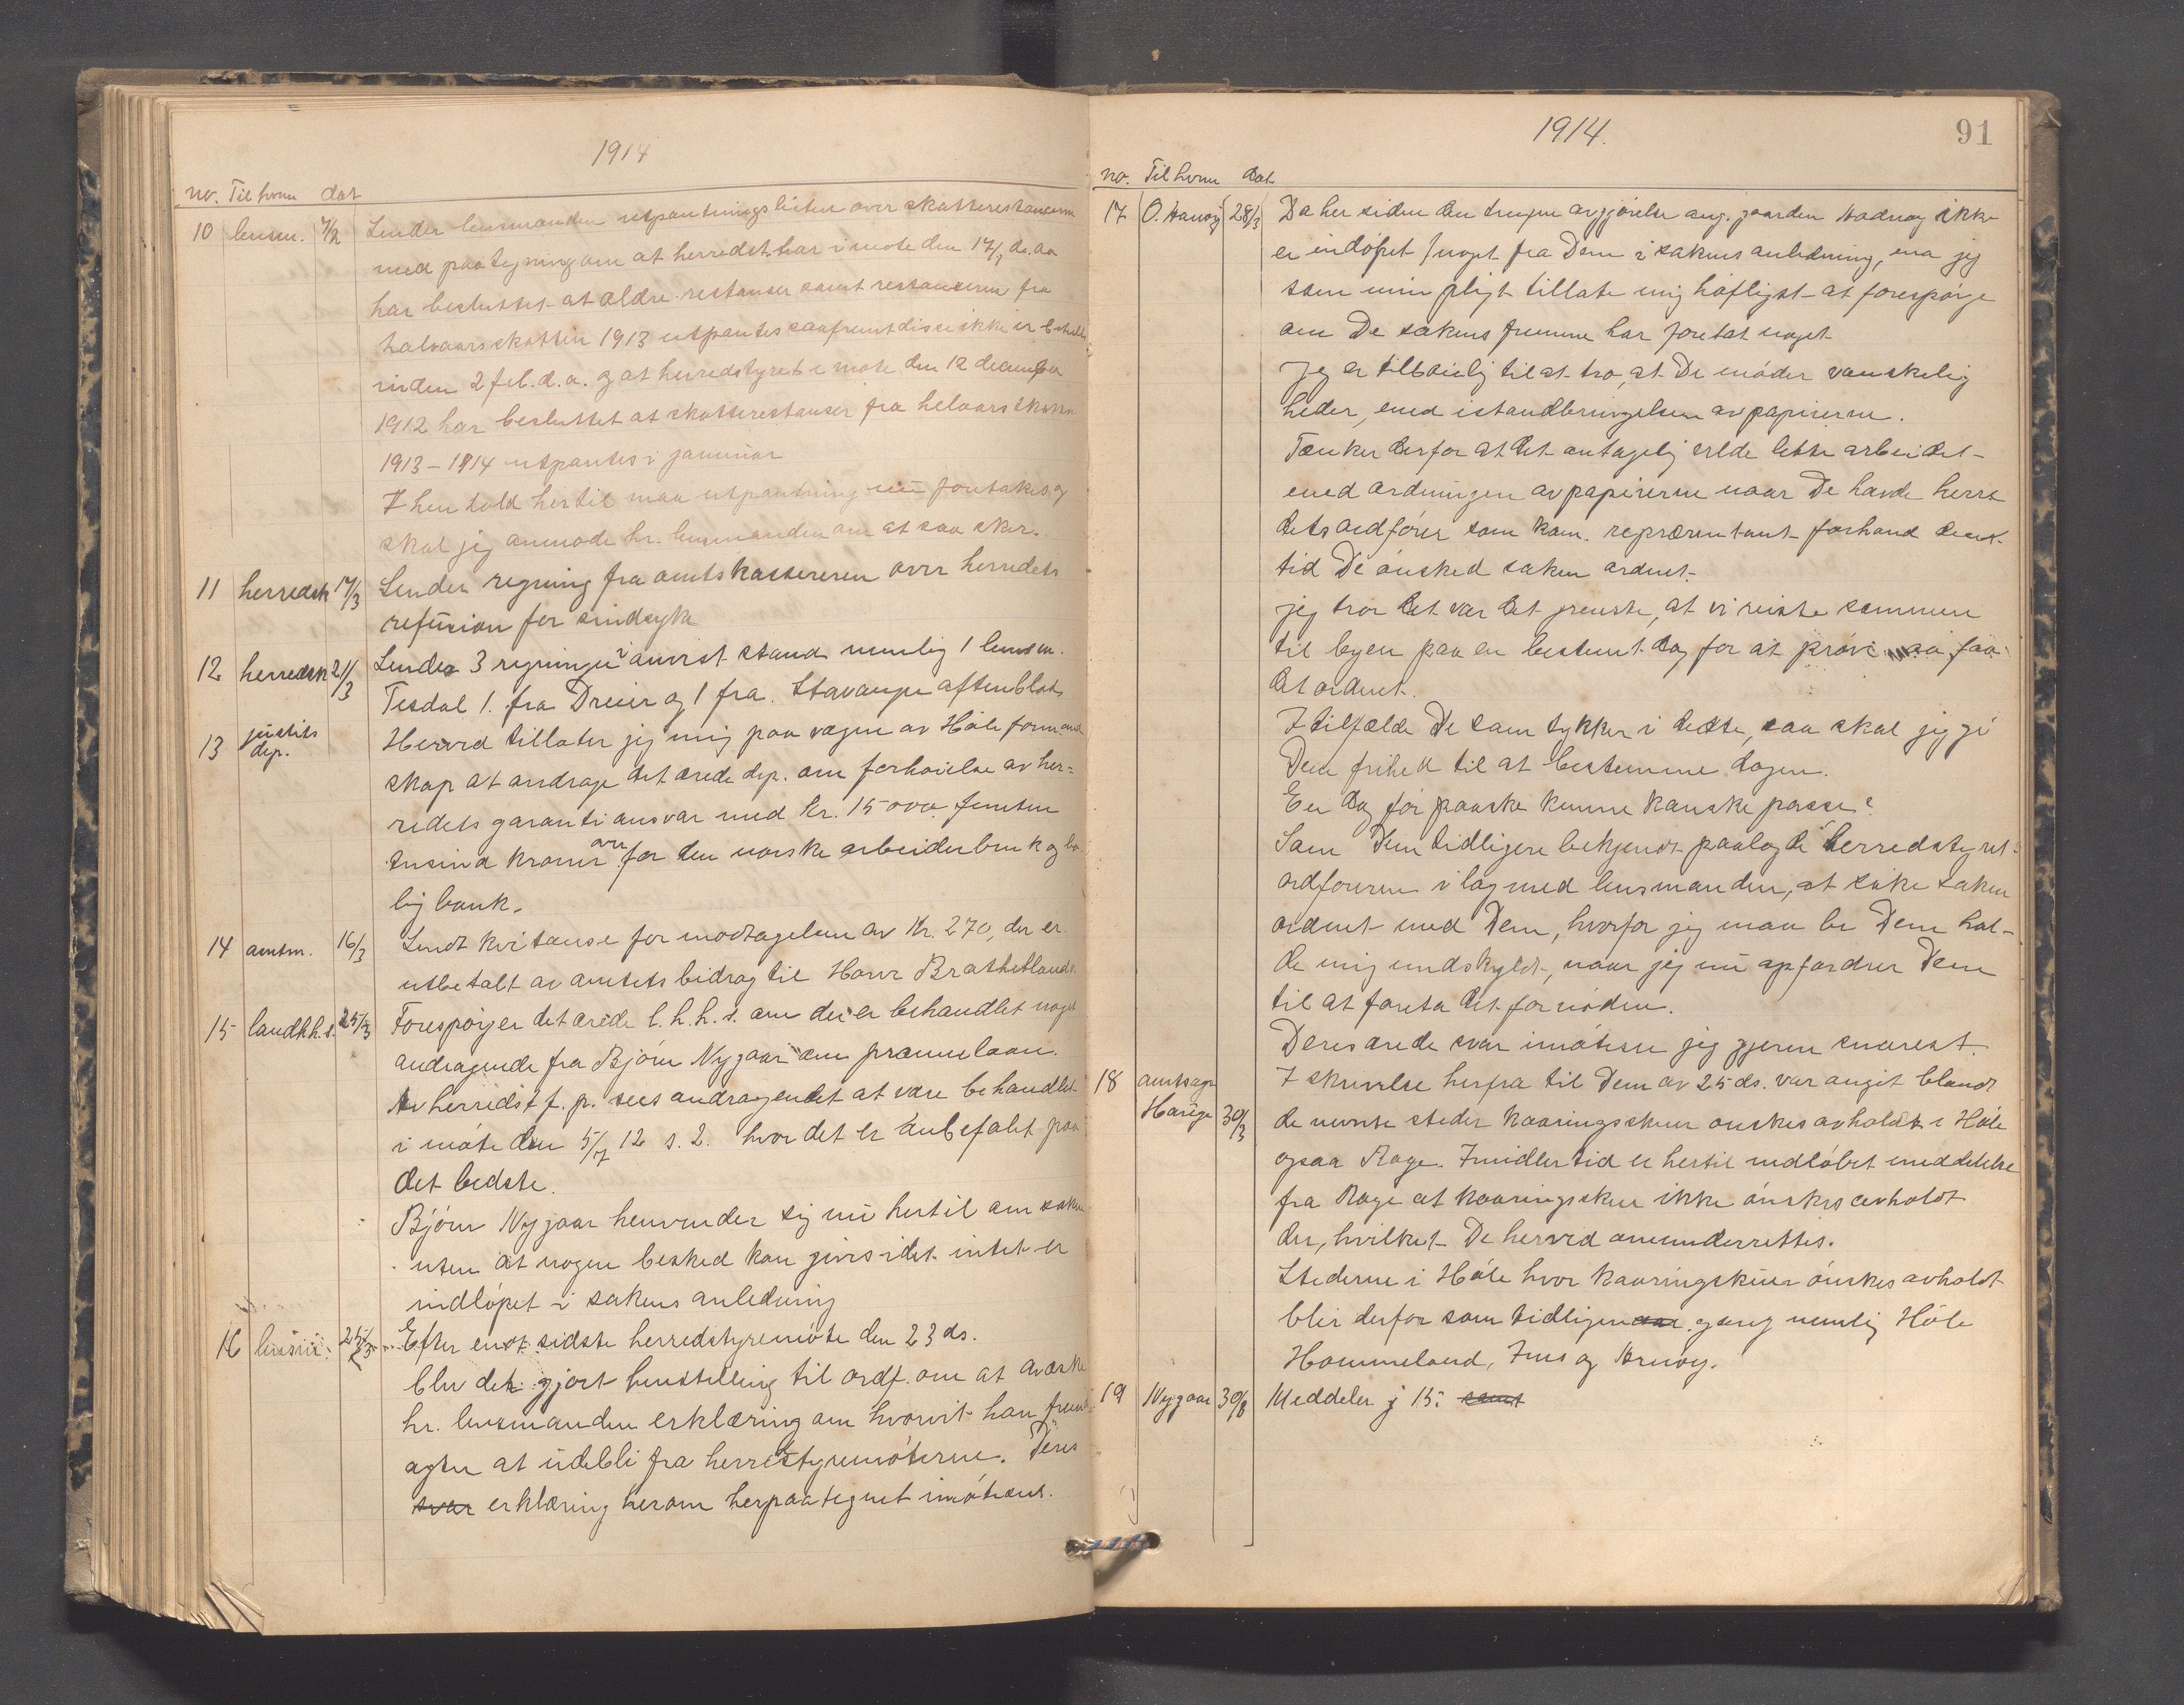 1914
no. Til hvem dat
10 lensm. 4/2 Sender lensmanden utpantningslisten over skatterestancerne
med paategning om at herredst. har i møte den 17/1 d. aa
har besluttet at ældre restanser samt restanserne fra
halvaarsskatten 1913 utpantes saafremt disse ikke er betalt
inden 2 feb. d.a. og at herredstyret i møte den 12 december
1912 har besluttet at skatterestanser fra helaarsskatten
1913-1914 utpantes i januar
I henhold hertil maa utpantning nu foretakes og
skal jeg anmode hr. lensmanden om at saa sker.
11 herredsk 17/3 Sender regning fra amtskassereren over herredets
refusion for sindsyke
12 herredsk 21/3 Sender 3 regninger i anvist stand nemlig 1 lensm.
Tesdal 1. fra Dreier og 1 fra Stavanger aftenblad
13 justits dep. Herved tillater jeg mig paa vegne av Høle formand
skap at andrage det ærede dep. om forhøielse av her=
redets garantiansvar med kr. 15000 femten
tusind kroner for den norske arbeiderbruk og bo
lig bank.
14 amtm. 16/3 Sendt kvitanse for modtagelsen av Kr. 270, der er
utbetalt av amtets bidrag til Hans Brathetland.
15 landh.h.s. 25/3 Forespørger det ærede l.h.h.s. om der er behandlet noget
andragende fra Bjørn Nygaar om præmielaan.
Av herredst f. p. sees andragendet at være behandlet
i møte den 5/7 12 s. 2. hvor det er anbefalet paa
det bedste.
Bjørn Nygaar henvender sig nu hertil om saken
uten at nogen besked kan givis idet intet er
indløpet i sakens anledning
16 lensm. 25/3 Efter endt sidste herredstyremøte den 23 ds.
blev det gjort henstilling til ordf. om at avæske
hr. lensmanden erklæring om hvorvit han fremd
agter at utebli fra herredstyremøterne. Deres
svar erklæring herom herpaategnet imøtsees.
1914. 91
no. Til hvem dat
17 O. Hauvy 28/3 Da her siden den trufne avgjørelse ang. gaarden Hadnøy ikke
er indløpet noget fra Dem i sakens anledning, maa jeg
som min pligt tillate mig høfligst at forespørge
om De sakens fremme har foretat noget
Jeg er tilbøielig til at tro, at De møder vanskelig
heder, med istandbringelsen av papirerne.
Tænker derfor at det antagelig vilde lette arbeidet
med ordningen av papirerne naar De havde herre
detsordfører som kom. repræsentant forhand den
tid De ønsked saken ordnet.
jeg tror det var det greieste, at vi reiste sammen
til byen paa en bestemt dag for at prøve faa
det ordnet.
I tilfælde De samtykker i dette, saa skal jeg gi
Dem frihed til at bestemme dagen.
En dag før paaske kunne kanske passe?
Som Dem tidligere bekjendt paalagde herredstyret
ordføreren i lag med lensmanden, at søke saken
ordnet med Dem, hvorfor jeg maa be Dem hol-
de mig undskyldt, naar jeg nu opfordrer Dem
til at foreta det fornødne.
Deres ærede svar imøteser jeg gjerne snarest.
18 amtsagr. 30/3 I skrivelse herfra til Dem av 25 ds. var angit blandt
de nævnte steder kaaringsskuer ønskes avholdt i Høle
ogsaa Rage. Imidlertid er hertil indløbet meddelelse
fra Rage at kaaringsskue ikke ønskes avholdt
der, hvilket De herved omunderrettes.
Stederne i Høle hvor kaaringskuer ønskes avholdt
blir derfor som tidligere gang nemlig Høle
Hommeland, Ims og Hrnøy.
19 Nygaar 30/3 Meddeler j 15. samt